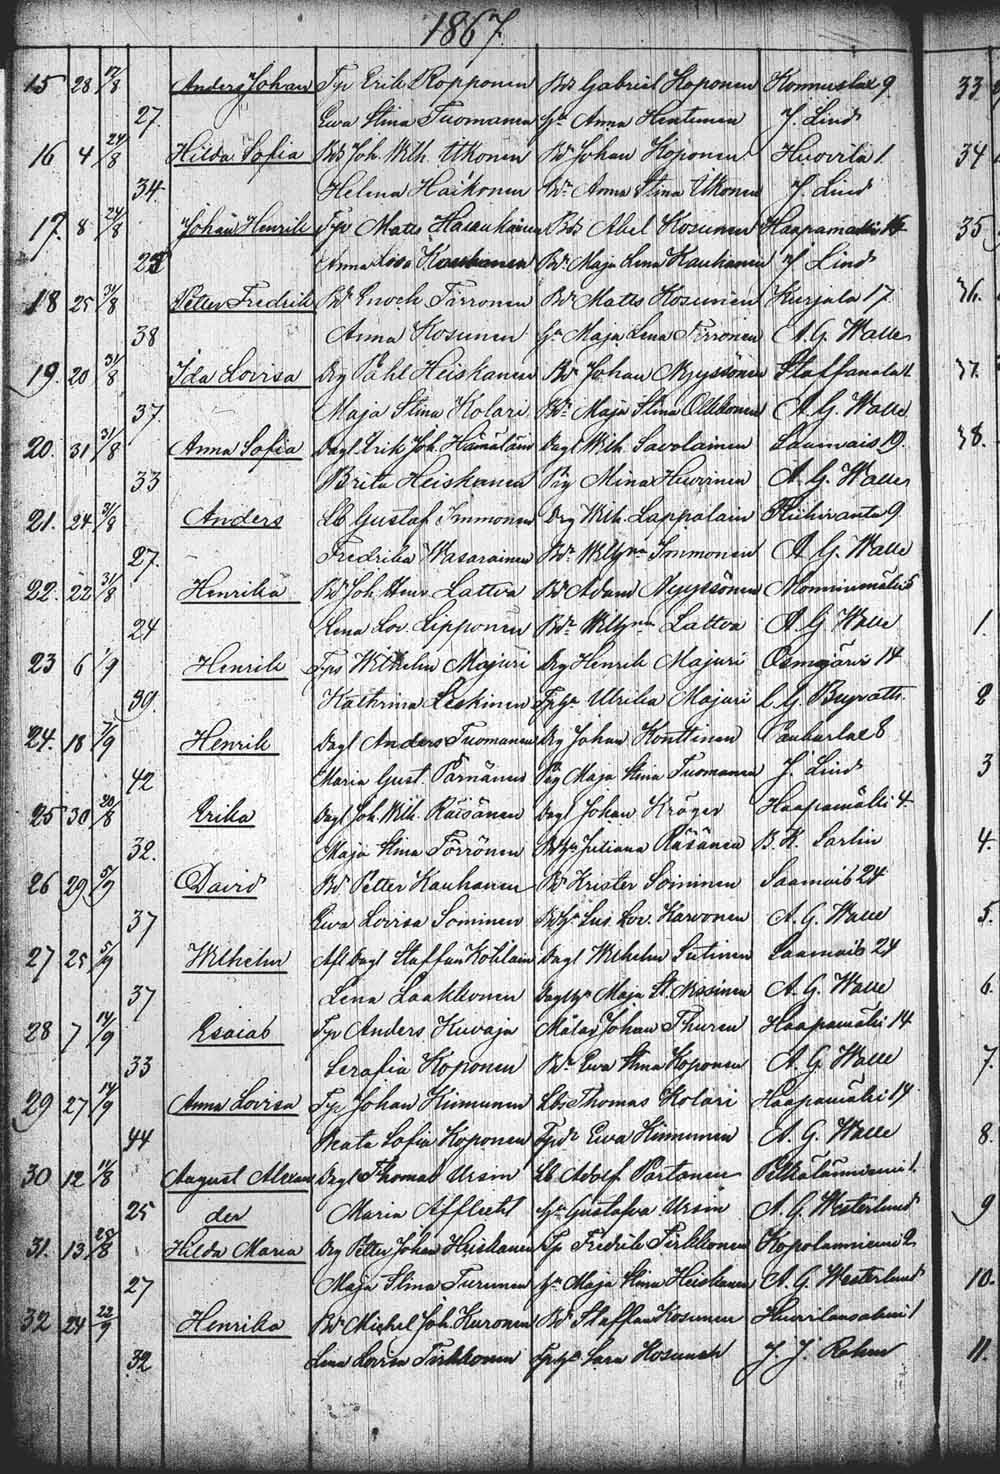 1867.
15 28 17/8 Anders Johan Tp Erik Ropponen Bds Gabriel Koponen 9 33
27. Ewa Stina Tuomanen Hu Anna J. Lind
16 4 24/8 Hilda Sofia Bds Joh. Wilh. Ukonen Bd Johan Koponen Huorila 1 34
34. Helena Haikonen Anna Stina Ukonen J. Lind
17. 8 24/8 Johan Henrik Tp Matts Bds Abel Kosunen Haapamäki 35
Anna Lovisa Kauhanen Maja Lena Kauhanen J Lind
18 25 31/8 Petter Fredrik Bd Enoch Törrönen Bd Matts Kosunen Kurjala 17 36.
38 Anna Kosunen Maja Lena A. G. Walle
19. 20 31/8 Ida Lovisa Drg Påhl Heiskanen Bd Johan Nyyssönen 37.
37. Maja Stina Kolari Maja Stina Ollikonen A. G. Walle
20. 31 31/8 Anna Sofia Dagl Erik Joh. Hämäläin Dagl Wilh. Savolainen Saamais 19. 38.
33 Brita Heiskanen Pig Mina Huorinen A. G. Walle
21. 24 31/8 Anders Lb Gustaf Immonen Drg Wilh. Lappalain Riihiranta 9
27. Fredrika Wasarainen Immonen A. G. Walle
22. 22 31/8 Henrika Bd Joh. Henr. Lattva Bd Adam Nyyssönen Monninmäki 5
24 Lena Lov. Lipponen Lattva A. G Walle 1.
23 6 1/9 Henrik Tps Wilhelm Majuri Drg Henrik Majuri Osmajärvi 14
39. Kathrina Leskinen Ulrika Majuri 2
24. 18 7/9 Henrik Dagl Anders Tuomanen Drg Johan Konttinen 8
42 Maria Gust. Pärnänen Pig Maja Stina Tuomanen J. Lind 3
25 30 20/8 Erika Dagl Joh. Wilh. Räisänen Dagl Johan Kröger Haapamäki 4
32. Maja Stina Törrönen Juliana Räsänen B. K. Sarlin 4.
26 29 5/9 David Bd Petter Kauhanen Bd Krister Soininen Saamais 24
37 Ewa Lovisa Soininen Lov. Karvonen A. G. Walle 5.
27 25 5/9 Wilhelm Afl. Dagl Staffan Kohlain Dagl Wilhelm Sutinen Saamais 24
37 Lena Laakkonen Maja St. Nissinen A. G. Walle 6.
28 7 14/9 Esaias Tp Anders Kuvaja Johan Thuren Haapamäki 14
33 Serafia Koponen Ewa Stina Koponen A. G. Walle 7.
29 27 14/9 Anna Lovisa Tp Johan Kinnunen Lbs Thomas Kolari Haapamäki 14
44 Beata Sofia Koponen Ewa Kinnunen A. G. Walle 8.
30 12 11/8 August Alexan Dagl Thomas Ursin Lb Adolf Partonen
25 der Maria Afflecht Gustafva Ursin A. G. Westerlund 9
31. 13 25/8 Hilda Maria Drg Petter Johan Heiskanen Tp Fredrik Tirkkonen Kopolanniemi 2
27 Maja Stina Turunen Maja Stina Heiskanen A. G. Westerlund 10.
32 24 22/9 Henrika Bd Michel Joh. Kuronen Bd Staffan Kosunen 1
32 Lena Lovisa Tirkkonen Sara Kosunen J. J. 11.